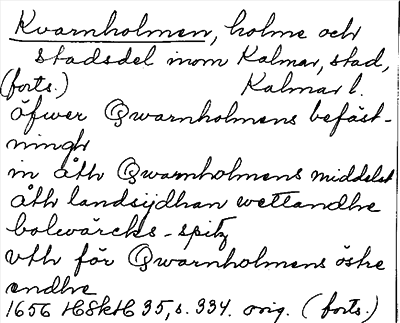 Kvarnholmen, holme och
stadsdel inom Kalmar, stad,
(forts.) Kalmar l.
öfwer Qwarnholmens befäst-
ningh
in åth Qwarnholmens middelst
åth landsijdhan wettandhe
bolwärcks-spitz
vth för Qwarnholmens östre
endhe
1656 HSkH 35, s. 334. orig. (forts.)